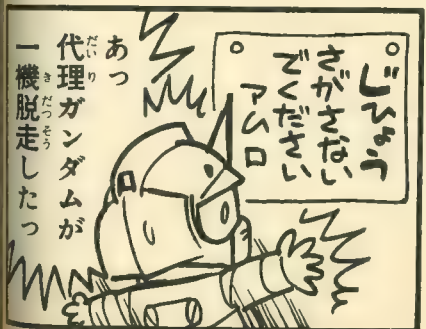 じひょう
さがさない
でください
アムロ
あっ
代理ガンダムが
一機脱走したっ